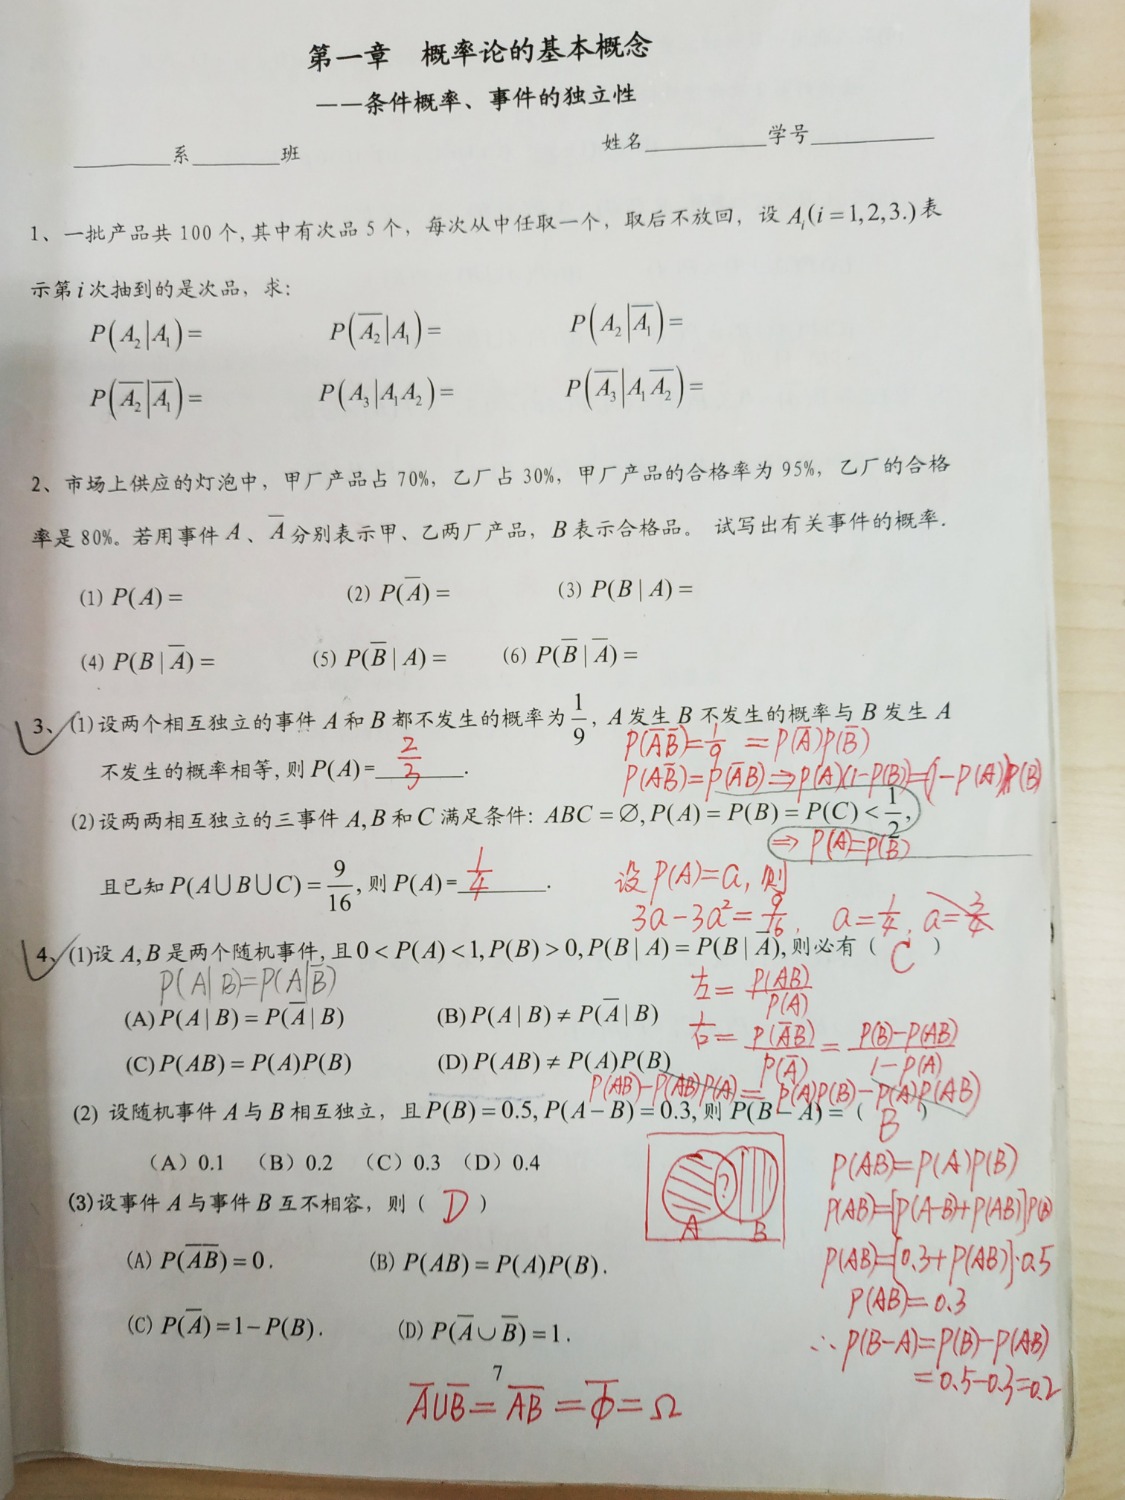 第一章 概率论的基本概念
——条件概率、事件的独立性
________系________班 姓名__________学号__________
1、一批产品共100个,其中有次品5个，每次从中任取一个，取后不放回，设 A_i(i=1,2,3.)表
示第i次抽到的是次品，求:
P(A₂|A₁)= P(A̅₂|A₁)= P(A₂|A̅₁)=
P(A̅₂|A̅₁)= P(A₃|A₁A₂)= P(A̅₃|A₁A̅₂)=
2、市场上供应的灯泡中，甲厂产品占70%，乙厂占30%，甲厂产品的合格率为95%，乙厂的合格
率是80%。若用事件A、A̅分别表示甲、乙两厂产品，B表示合格品。 试写出有关事件的概率.
(1) P(A)= (2) P(A̅)= (3) P(B|A)=
(4) P(B|A̅)= (5) P(B̅|A)= (6) P(B̅|A̅)=
3、(1)设两个相互独立的事件A和B都不发生的概率为1/9，A发生B不发生的概率与B发生A
P(A̅B̅)=1/9 =P(A̅)P(B̅)
不发生的概率相等,则P(A)=2/3.
P(AB̅)=P(A̅B)⇒P(A)(1-P(B))=(1-P(A))P(B)
(2)设两两相互独立的三事件A,B和C满足条件: ABC=∅,P(A)=P(B)=P(C)<1/2,
⇒ P(A)=P(B)
且已知P(A∪B∪C)=9/16,则P(A)=1/4.
设P(A)=a,则
3a-3a²=9/16, a=1/4, a=3/4
4、(1)设A,B是两个随机事件,且0<P(A)<1,P(B)>0,P(B|A)=P(B|A̅),则必有（ C ）
P(A|B)=P(A|B̅)
左=P(AB)/P(A)
(A)P(A|B)=P(A̅|B) (B)P(A|B)≠P(A̅|B)
右=P(A̅B)/P(A̅)=(P(B)-P(AB))/(1-P(A))
(C)P(AB)=P(A)P(B) (D)P(AB)≠P(A)P(B)
P(AB)-P(AB)P(A)=P(A)P(B)-P(A)P(AB)
(2) 设随机事件A与B相互独立，且P(B)=0.5,P(A-B)=0.3,则P(B-A)=（ B ）
(A) 0.1 (B) 0.2 (C) 0.3 (D) 0.4
A ? B
P(AB)=P(A)P(B)
P(AB)=[P(A-B)+P(AB)]P(B)
P(AB)=[0.3+P(AB)]·0.5
P(AB)=0.3
∴P(B-A)=P(B)-P(AB)
=0.5-0.3=0.2
(3)设事件A与事件B互不相容，则（ D ）
(A) P(A̅B̅)=0. (B) P(AB)=P(A)P(B).
(C) P(A̅)=1-P(B). (D) P(A̅∪B̅)=1.
7
A̅∪B̅=A̅B̅=ϕ̅=Ω